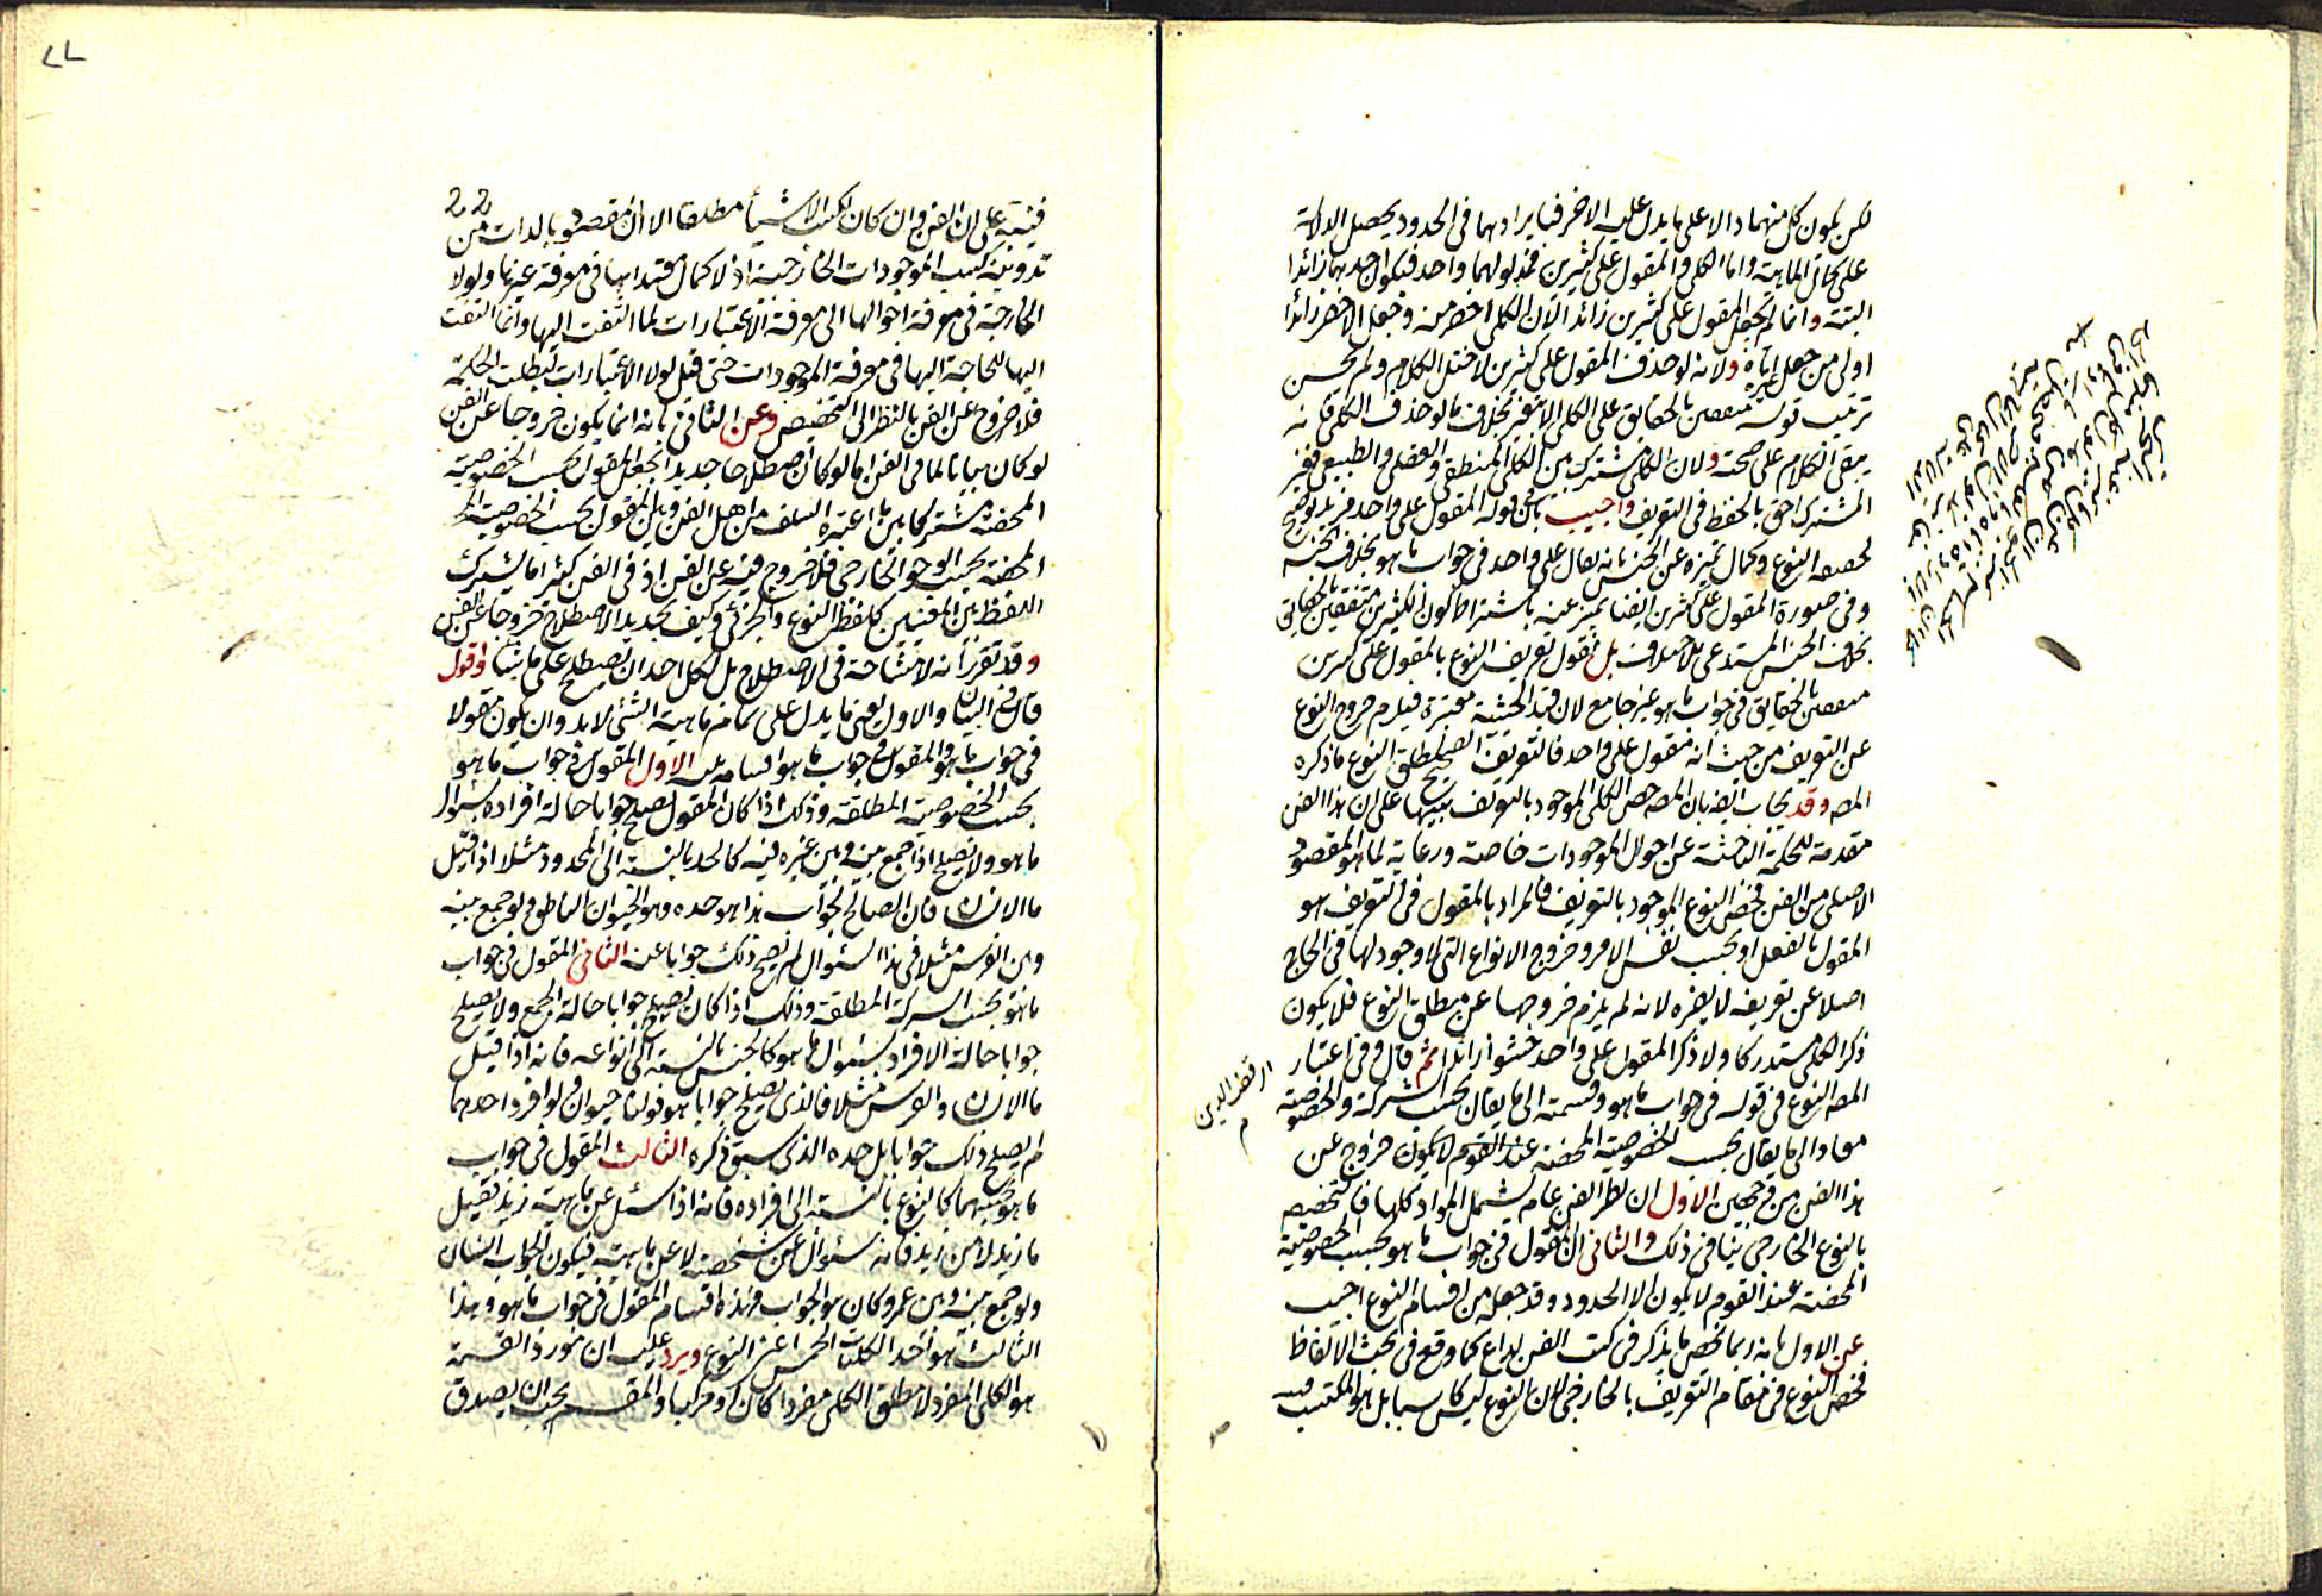 لكن يكون كل منهما دالا على ما يدل عليه الاخر فبايرادهما فى الحدود يحصل الدلالة
على كمال الماهية واما الكلى والمقول على كثيرين فمدلولهما واحد فيكون احدهما زائدا
البتة وانما لم يجعل المقول على كثيرين زائدا لان الكلى اخصر منه وجعل الاخصر زائدا
اولى من جعل غيره اياه ولانه لو حذف المقول على كثيرين لاختل الكلام ولم يحسن
ترتيب قوله متفقين بالحقايق على الكلى الا بتغير بخلاف ما لو حذف الكلى فانه
يبقى الكلام على صحته ولان الكلى مشترك بين الكلى المنطقى والعقلى والطبيعى فغير
المشترك احق بالحفظ فى التعريف واجيب بان قوله المقول على واحد مزيد توضيح
لحقيقة النوع وكمال تميزه عن الجنس بانه يقال على واحد فى جواب ما هو بخلاف الجنس
وفى صورة المقول على كثيرين ايضا يميز عنه باشتراط كون الكثيرين متفقين بالحقايق
بخلاف الجنس المستدعى للاختلاف بل نقول تعريف النوع بالمقول على كثيرين
متفقين بالحقايق فى جواب ما هو غير جامع لان قيد الحيثية معتبرة فيلزم خروج النوع
عن التعريف من حيث انه مقول على واحد فالتعريف الصحيح لمطلق النوع ما ذكره
المصـ وقد يجاب ايضا بان المصـ خص الكلى الموجود بالتعريف تنبيها على ان هذا الفن
مقدمة للحكمة الباحثة عن احوال الموجودات خاصة ورعاية لما هو المقصود
الاصلى من الفن فخص النوع الموجود بالتعريف فالمراد بالمقول فى التعريف هو
المقول بالفعل او بحسب نفس الامر وخروج الانواع التى لا وجود لها فى الخارج
اصلا عن تعريفه لا يضره لانه لم يلزم خروجها عن مطلق النوع فلا يكون
ذكر الكلى مستدركا ولا ذكر المقول على واحد حشوا زائدا ثم قال وفى اعتبار
المصـ النوع فى قوله فى جواب ما هو وقسمته الى ما يقال بحسب الشركة والخصوصية
معا والى ما يقال بحسب الخصوصية المحضة عند القوم لا يكون خروج عن
هذا الفن من وجهين الاول ان نظر الفن عام يشمل المواد كلها فالتخصيص
بالنوع الخارجى ينافى ذلك والثانى ان المقول فى جواب ما هو بحسب الخصوصية
المحضة عند القوم لا يكون الا الحدود وقد جعله من اقسام النوع اجيب
عن الاول بانه ربما يخص ما يذكر فى كتب الفن لداع كما وقع فى بحث الالفاظ
فخص النوع فى مقام التعريف بالخارجى لان النوع ليس كاسبا بل هو المكتسب فيه
فنبه على ان الفن وان كان لكسب الاشياء مطلقا الا ان المقصود بالذات من
تدوينه كسب الموجودات الخارجية اذ لا كمال معتدا بها فى معرفة غيرها ولولا
الحاجة فى معرفة احوالها الى معرفة الاعتبارات لما التفت اليها وانما التفت
اليها للحاجة اليها فى معرفة الموجودات حتى قيل لولا الاعتبارات لبطلت الحكمة
فلا خروج عن الفن بالنظر الى التخصيص وعن الثانى بانه انما يكون خروجا عن الفن
لو كان بيانا لما فى الفن اما لو كان اصطلاحا جديدا بجعل المقول بحسب الخصوصية
المحضة مشتركا بين ما اعتبره السلف من اهل الفن وبين المقول بحسب الخصوصية
المحضة بحسب الوجود الخارجى فلا خروج فيه عن الفن اذ فى الفن كثيرا ما يشترك
اللفظ بين المعنيين كلفظ النوع والجزئى وكيف يكون تجديد الاصطلاح خروجا عن الفن
وقد تقرر انه لا مشاحة فى الاصطلاح بل لكل احد ان يصطلح على ما يشاء واقول
قال فى البيان والاول يعنى ما يدل على تمام ماهية الشئ لابد وان يكون مقولا
فى جواب ما هو والمقول فى جواب ما هو اقسامه ثلثة الاول المقول فى جواب ما هو
بحسب الخصوصية المطلقة وذلك اذا كان المقول يصلح جوابا حالة افراده بسؤال
ما هو ولا يصلح اذا جمع بينه وبين غيره فيه كالحد بالنسبة الى المحدود مثلا اذا قيل
ما الانسان فان الصالح لجواب هذا هو حده وهو الحيوان الناطق ولو جمع بينه
وبين الفرس مثلا فى هذا السؤال لم يصلح ذلك جوابا عنه الثانى المقول فى جواب
ما هو بحسب الشركة المطلقة وذلك اذا كان يصلح جوابا حالة الجمع ولا يصلح
جوابا حالة الافراد بسؤال ما هو كالجنس بالنسبة الى انواعه فانه اذا قيل
ما الانسان والفرس مثلا فالذى يصلح جوابا هو قولنا حيوان ولو افرد احدهما
لم يصلح ذلك جوابا بل حده الذى سبق ذكره الثالث المقول فى جواب
ما هو بحسبهما كالنوع بالنسبة الى افراده فانه اذا سئل عن ماهية زيد فقيل
ما زيد لا من زيد فانه سؤال عن مشخصة لا عن ماهية فيكون الجواب انسان
ولو جمع بينه وبين عمرو كان هو الجواب فهذه اقسام المقول فى جواب ما هو وهذا
الثالث هو احد الكليات الخمس اعنى النوع ويرد عليه ان مورد القسمة
هو الكلى المفرد لا مطلق الكلى مفردا كان او مركبا والمقسم يجب ان يصدق